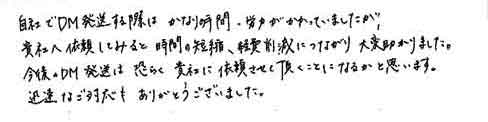 自社でDM発送する際は かなり時間・労力がかかっていましたが、
貴社へ依頼してみると 時間の短縮、経費削減につながり 大変助かりました。
今後のDM発送は 恐らく 貴社に依頼させて頂くことになるかと思います。
迅速なご対応も ありがとうございました。